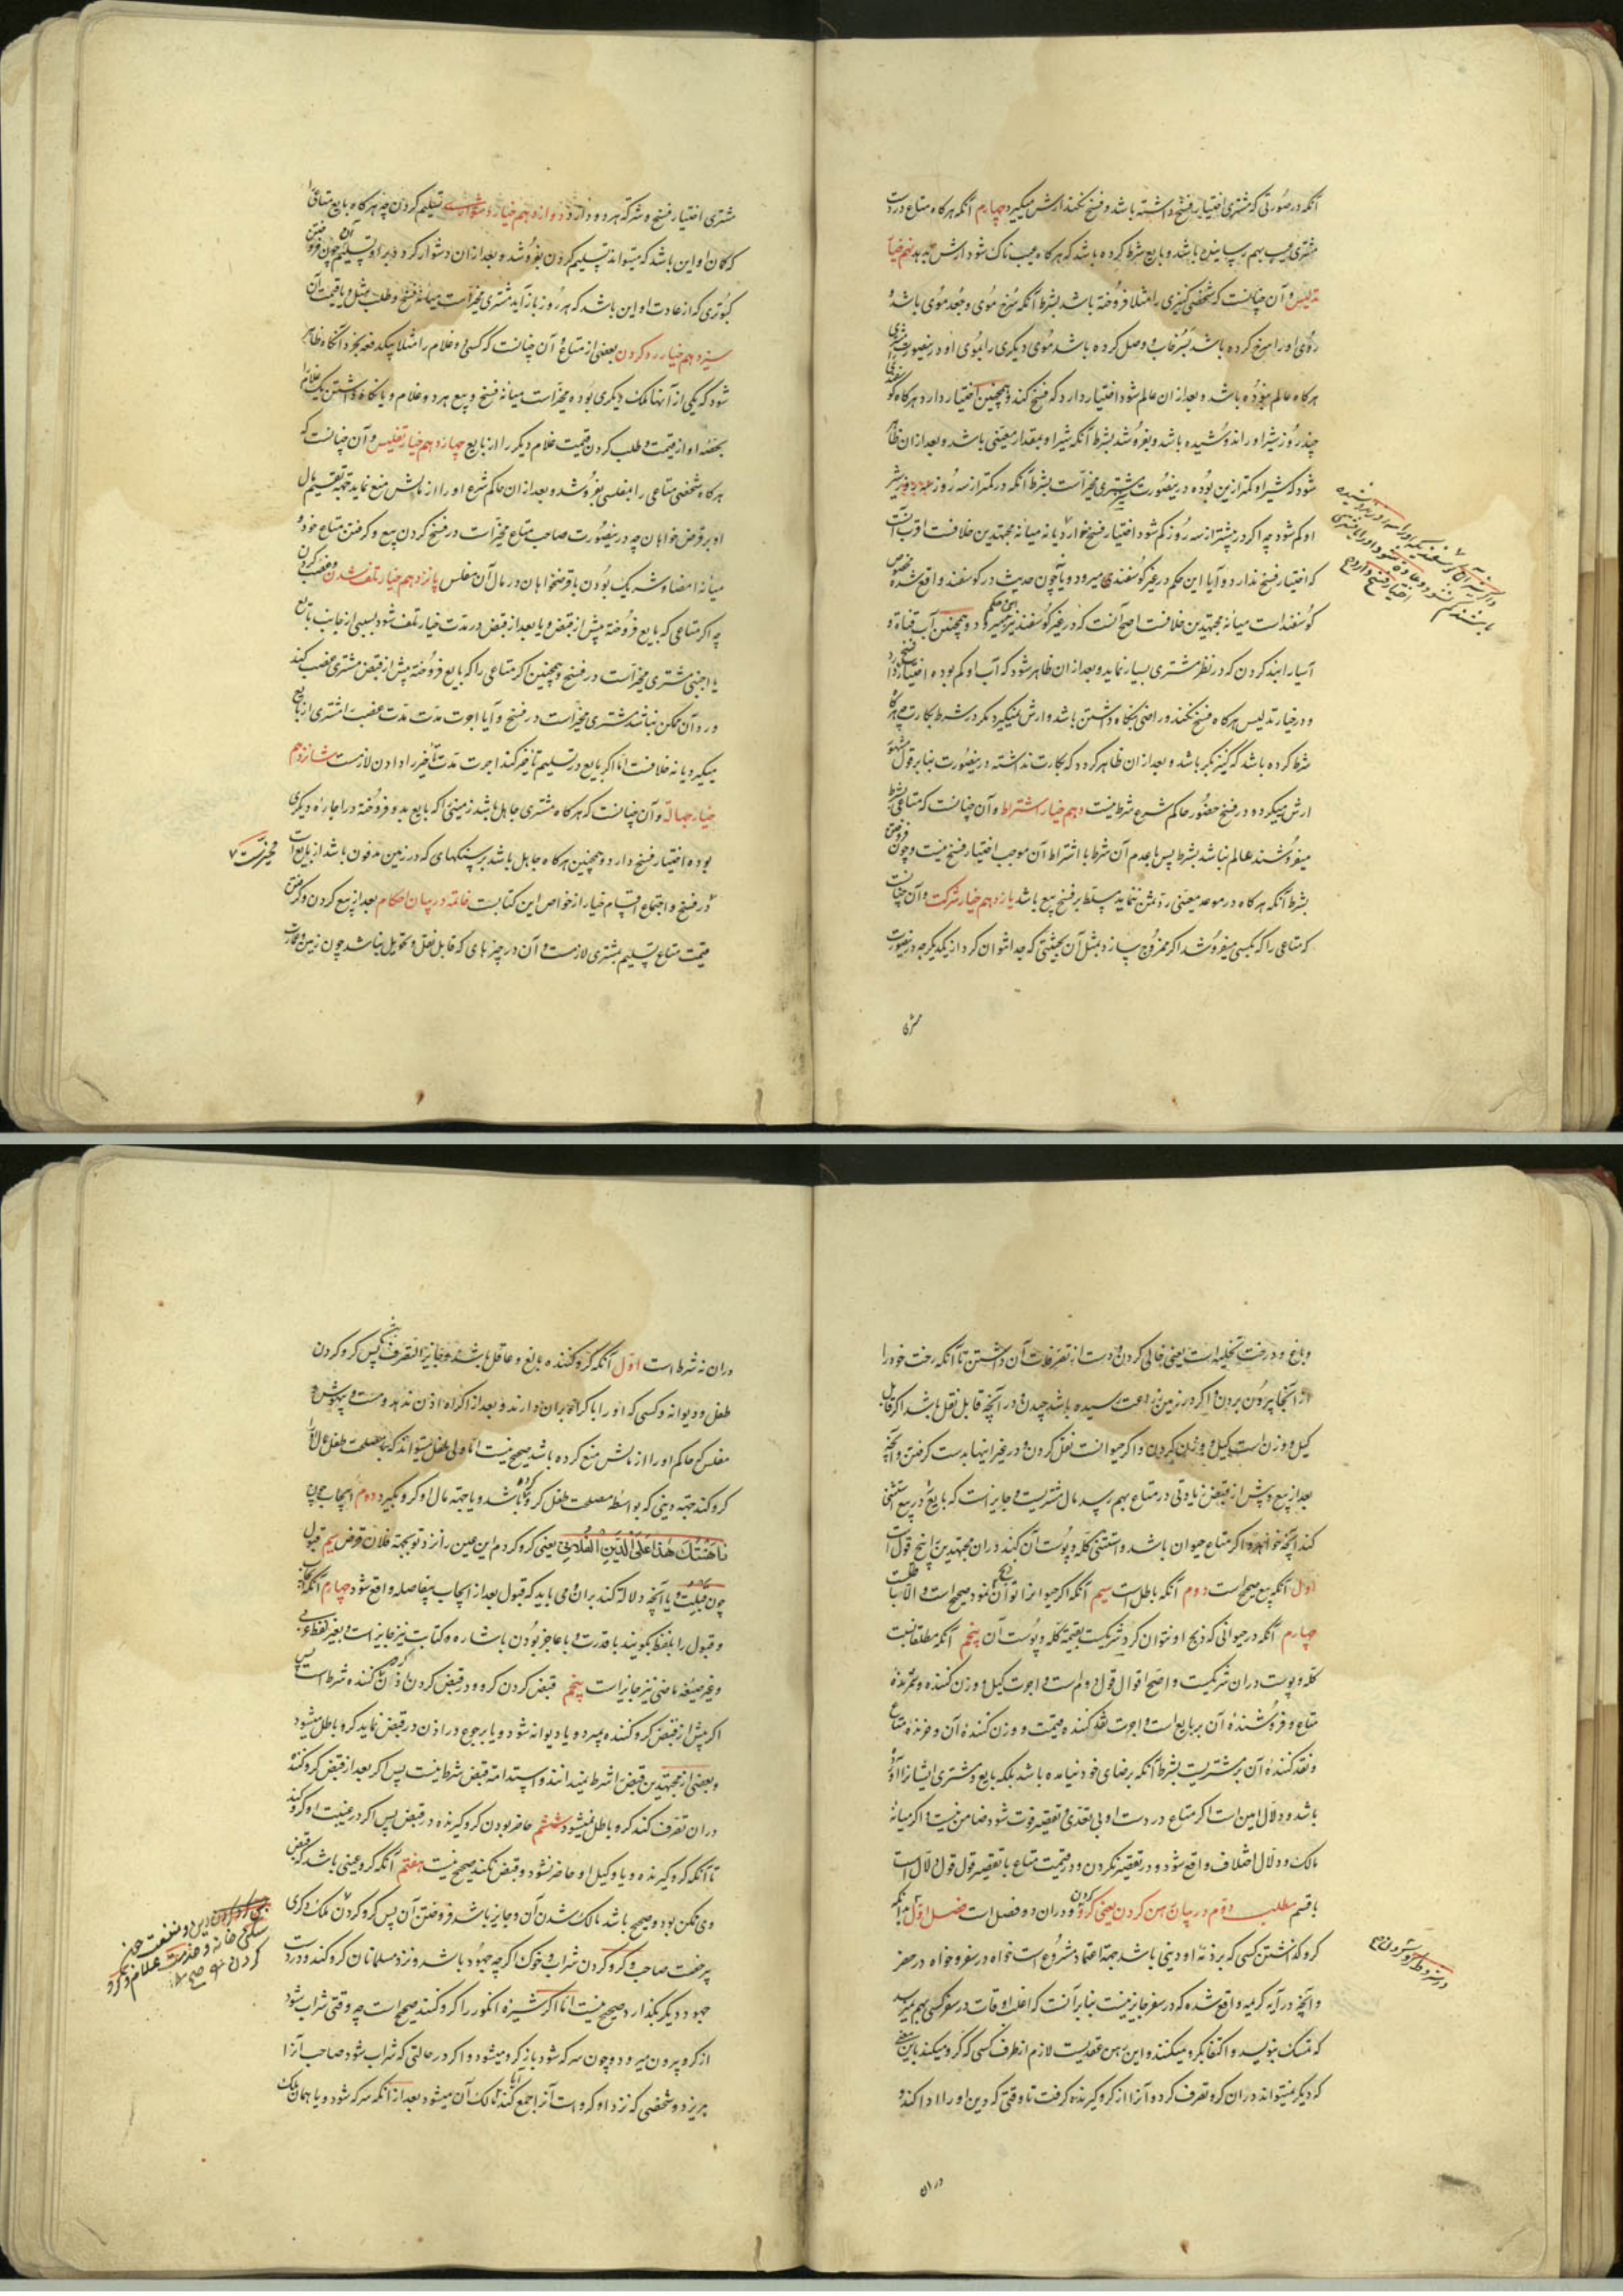 آنکه در صورتی که مشتری اختیار فسخ داشته باشد و فسخ نکند ارش میگیرد چهارم آنکه هرگاه متاع در دست
مشتری عیب بهم رسانیده باشد و بایع شرط کرده باشد که هرگاه عیب ناک شود ارش بدهد نهم خیار
تدلیس و آن چنانست که شخصی کنیزی را مثلا فروخته باشد بشرط آنکه سرخ موی و جعد موی باشد و
روی او را سرخ کرده باشد بسرخاب و وصل کرده باشد موی دیگری را بموی او درینصورت مشتری
هرگاه عالم نبوده باشد و بعد از ان عالم شود اختیار دارد که فسخ کند و همچنین اختیار دارد هرگاه گوسفندی را
چند روز شیر او را ندوشیده باشد و بفروشد بشرط آنکه شیر او بمقدار معینی باشد و بعد از ان ظاهر
شود که شیر او کمتر ازین بوده درینصورت مشتری مخیرست بشرط آنکه در کمتر از سه روز شیر
او کم شود چه اگر در بیشتر از سه روز کم شود اختیار فسخ خواه دارد یا نه میانه مجتهدین خلافست اقرب آنست
که اختیار فسخ ندارد و آیا این حکم در غیر گوسفند میرود و یا چون حدیث در گوسفند واقع شده مخصوص
گوسفند است میانه مجتهدین خلافست اصح آنست که در غیر گوسفند نیز این حکم میرود و همچنین آب قناة و
آسیا را بند کردن که در نظر مشتری بسیار نماید و بعد از ان ظاهر شود که آب او کم بوده اختیار فسخ دارد
و در خیار تدلیس هرگاه فسخ نکند و راضی بنگاه داشتن باشد و ارش نمیگیرد مگر در شرط بکارت چه هرگاه
شرط کرده باشد که کنیز بکر باشد و بعد از ان ظاهر گردد که بکارت نداشته درینصورت بنا بر قول مشهور
ارش میگیرد و در فسخ حضور حاکم شرع شرط نیست دهم خیار اشتراط و آن چنانست که متاعی بشرط
میفروشند عالم نباشد بشرط پس با عدم آن شرط با اشتراط آن موجب اختیار فسخ نیست و چون فروختن
بشرط آنکه هرگاه در موعد معینی رد ثمن نماید مسلط بر فسخ بیع باشد یازدهم خیار شرکت و آن چنانست
که متاعی را که بکسی میفروشد اگر ممزوج سازد بمثل آن بحیثیتی که جدا نتوان کرد از یکدیگر چه درینصورت
مشتری
مشتری اختیار فسخ و شرکة هر دو دارد دوازدهم خیار دشواری تسلیم کردن چه هرگاه بایع متاعی را
که گمان او این باشد که میتواند تسلیم کردن بفروشد و بعد از ان دشوار گردد برو تسلیم آن چون فروختن
کبوتری که از عادت او این باشد که هر روز باز آید مشتری مخیرست میانه فسخ و طلب مثل و یا قیمت آن
سیزدهم خیار رد کردن بعضی از متاع و آن چنانست که کسی دو غلام را مثلا بیکدفعه بخرد آنگاه ظاهر
شود که یکی از آنها ملک دیگری بوده مخیرست میانه فسخ و بیع هر دو غلام و یا نگاه داشتن یک غلام را
بحصه او از قیمت و طلب کردن قیمت غلام دیگر را از بایع چهاردهم خیار تفلیس و آن چنانست که
هرگاه شخصی متاعی را بمفلسی بفروشد و بعد از ان حاکم شرع او را از مالش منع نماید جهة تقسیم مال
او بر قرض خواهان چه درینصورت صاحب متاع مخیرست در فسخ کردن بیع و گرفتن متاع خود و
میانه امضا و شریک بودن با قرضخواهان در مال آن مفلس پانزدهم خیار تلف شدن و غصب کردن
چه اگر متاعی که بایع فروخته پیش از قبض و یا بعد از قبض در مدت خیار تلف شود بسببی از جانب بایع
یا اجنبی مشتری مخیرست در فسخ و همچنین اگر متاعی را که بایع فروخته پیش از قبض مشتری غصب کند
و رد آن ممکن نباشد مشتری مخیرست در فسخ و آیا اجرت مدت غصب را مشتری از بایع
میگیرد یا نه خلافست اما اگر بایع در تسلیم تاخیر کند اجرت مدت تاخیر را دادن لازمست شانزدهم
خیار جهالة و آن چنانست که هرگاه مشتری جاهل باشد زمینی را که بایع بدو فروخته در اجاره دیگری
بوده اختیار فسخ دارد و همچنین هرگاه جاهل باشد بسنگهای که در زمین مدفون باشد از بایع
مخیرست
در فسخ و اجتماع اقسام خیار از خواص این کتابست خاتمه در بیان احکام بعد از بیع کردن و گرفتن
قیمت متاع تسلیم بمشتری لازمست و آن در چیزهای که قابل نقل و تحویل نباشد چون زمین و عمارت
و باغ و درخت تخلیه است یعنی خالی کردن و دست از تصرفات آن داشتن تا آنکه رخت خود را
از آنجا بیرون بردن و اگر در زمین زراعت رسیده باشد چیدن و در آنچه قابل نقل باشد اگر قابل
کیل و وزن است کیل و وزن کردن و اگر حیوانست نقل کردن و در غیر اینها بدست گرفتن و آنچه
بعد از بیع و پیش از قبض زیادتی در متاع بهم رسد مال مشتریست و جایز است که بایع در بیع استثنی
کند آنچه خواهد و اگر متاع حیوان باشد و استثنی کله و پوست آن کند در ان مجتهدین را پنج قول است
اول آنکه بیع صحیح است دوم آنکه باطل است سیم آنکه اگر حیوان را توان ذبح نمود صحیح است و الا باطلست
چهارم آنکه در حیوانی که ذبح او نتوان کرد شریکست بقیمة کله و پوست آن پنجم آنکه مطلقا بنسبت
کله و پوست در ان شریکست و اصح اقوال قول دوم است و اجرت کیل و وزن کننده و شمرنده
متاع و فروشنده آن بر بایع است و اجرت نقد کننده قیمت و وزن کننده آن و خرنده متاع
و نقد کننده آن بر مشتریست بشرط آنکه برضای خود نیامده باشد بلکه بایع و مشتری ایشان را آورده
باشد و دلال امین است اگر متاع در دست او بی تعدی و تقصیر فوت شود ضامن نیست و اگر میانه
مالک و دلال اختلاف واقع شود در تقصیر نکردن و در قیمت متاع با تقصیر قول قول دلال است
با قسم مطلب دوم در بیان رهن کردن یعنی گرو کردن و در ان دو فصل است فصل اول بدانکه
گرو گذاشتن کسی که بر ذمه او دینی باشد جهة اعتماد مشروع است خواه در سفر و خواه در حضر
در شروط گرو کردن
و آنچه در آیه کریمه واقع شده که در سفر جایز نیست بنا بر آنست که اغلب اوقات در سفر کسی بهم نمیرسد
که تمسک بنویسد و اکتفا بگرو میکنند و این رهن عقدیست لازم از طرف کسی که گرو میکند باین معنی
که دیگر نمیتواند در ان گرو تصرف کرد و آنرا از گرو گیرنده گرفت تا وقتی که دین او را ادا کند و
در ان
در ان نه شرط است اول آنکه گرو کننده بالغ و عاقل باشد و جایز التصرف باشد پس گرو کردن
طفل و دیوانه و کسی که او را باکراه بران دارند و بعد از اکراه اذن ندهد و مست و بیهوش و
مفلس که حاکم او را از مالش منع کرده باشد صحیح نیست اما ولی طفل میتواند که بمصلحت طفل مال او را
گرو کند جهة دینی که بواسطه مصلحت طفل کرده باشد و یا جهة مال او گرو بگیرد دوم ایجاب چون
رهنتک هذا علی الدین الفلانی یعنی گرو کردم این عین را نزد تو بجهة فلان قرض سیم قبول
چون قبلت و یا آنچه دلالة کند بران و می باید که قبول بعد از ایجاب بیفاصله واقع شود چهارم آنکه ایجاب
و قبول را بلفظ بگویند با قدرت و با عاجز بودن باشاره و کتابت نیز جایز است و بغیر لفظ عربی
و غیر صیغه ماضی نیز جایز است پنجم قبض کردن گرو و در قبض کردن اذن گرو کننده شرط است پس
اگر پیش از قبض گرو کننده بمیرد و یا دیوانه شود و یا رجوع در اذن در قبض نماید گرو باطل میشود
و بعضی از مجتهدین قبض را شرط نمیدانند و استدامه قبض شرط نیست پس اگر بعد از قبض گرو کننده
در ان تصرف کند گرو باطل نمیشود ششم حاضر بودن گرو گیرنده در قبض پس اگر در غیبت او گرو کند
تا آنکه گرو گیرنده و یا وکیل او حاضر نشود و قبض نکند صحیح نیست هفتم آنکه گرو عینی باشد که قبض
وی ممکن بود و صحیح باشد مالک شدن آن و جایز باشد فروختن آن پس گرو کردن ملک دیگری
دین و منفعت چون
سکنی خانه و خدمت غلام و گرو
کردن صحیح
بی رخصت صاحب و گرو کردن شراب و خوک اگر چه جهود باشد و نزد مسلمانان گرو کند و در دست
جهود دیگر بگذارد صحیح نیست اما اگر شیره انگور را گرو کنند صحیح است چه وقتی شراب شود
از گرو بیرون میرود و چون سرکه شود باز گرو میشود و اگر در حالتی که شراب شود صاحب آنرا
بریزد و شخصی که نزد او گرو است آنرا جمع کند مالک آن میشود بعد از آنکه سرکه شود و یا همان ملک